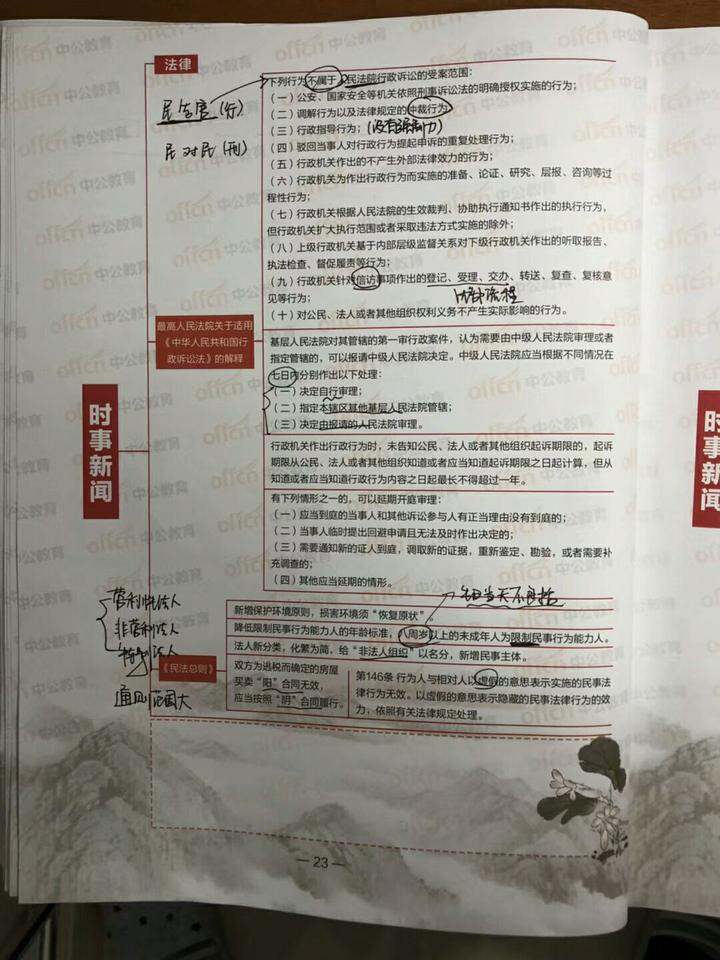 法律
下列行为不属于人民法院行政诉讼的受案范围：
（一）公安、国家安全等机关依照刑事诉讼法的明确授权实施的行为；
（二）调解行为以及法律规定的仲裁行为；
（三）行政指导行为；
（没有强制力）
（四）驳回当事人对行政行为提起申诉的重复处理行为；
（五）行政机关作出的不产生外部法律效力的行为；
（六）行政机关为作出行政行为而实施的准备、论证、研究、层报、咨询等过
程性行为；
（七）行政机关根据人民法院的生效裁判、协助执行通知书作出的执行行为，
但行政机关扩大执行范围或者采取违法方式实施的除外；
（八）上级行政机关基于内部层级监督关系对下级行政机关作出的听取报告、
执法检查、督促履责等行为；
（九）行政机关针对信访事项作出的登记、受理、交办、转送、复查、复核意
见等行为；
内部流程
（十）对公民、法人或者其他组织权利义务不产生实际影响的行为。
民告官（行）
民对民（刑）
最高人民法院关于适用
《中华人民共和国行
政诉讼法》的解释
基层人民法院对其管辖的第一审行政案件，认为需要由中级人民法院审理或者
指定管辖的，可以报请中级人民法院决定。中级人民法院应当根据不同情况在
七日内分别作出以下处理：
（一）决定自行审理；
（二）指定本辖区其他基层人民法院管辖；
（三）决定由报请的人民法院审理。
行政机关作出行政行为时，未告知公民、法人或者其他组织起诉期限的，起诉
期限从公民、法人或者其他组织知道或者应当知道起诉期限之日起计算，但从
知道或者应当知道行政行为内容之日起最长不得超过一年。
有下列情形之一的，可以延期开庭审理：
（一）应当到庭的当事人和其他诉讼参与人有正当理由没有到庭的；
（二）当事人临时提出回避申请且无法及时作出决定的；
（三）需要通知新的证人到庭，调取新的证据，重新鉴定、勘验，或者需要补
充调查的；
（四）其他应当延期的情形。
时事新闻
生日当天不包括
营利性法人
非营利法人
特别法人
范围大
《民法总则》
新增保护环境原则，损害环境须“恢复原状”。
降低限制民事行为能力人的年龄标准，八周岁以上的未成年人为限制民事行为能力人。
法人新分类，化繁为简，给“非法人组织”以名分，新增民事主体。
双方为逃税而确定的房屋
买卖“阳”合同无效，
应当按照“阴”合同履行。
第146条 行为人与相对人以虚假的意思表示实施的民事法
律行为无效。以虚假的意思表示隐藏的民事法律行为的效
力，依照有关法律规定处理。
— 23 —
时事新
offcn中公教育